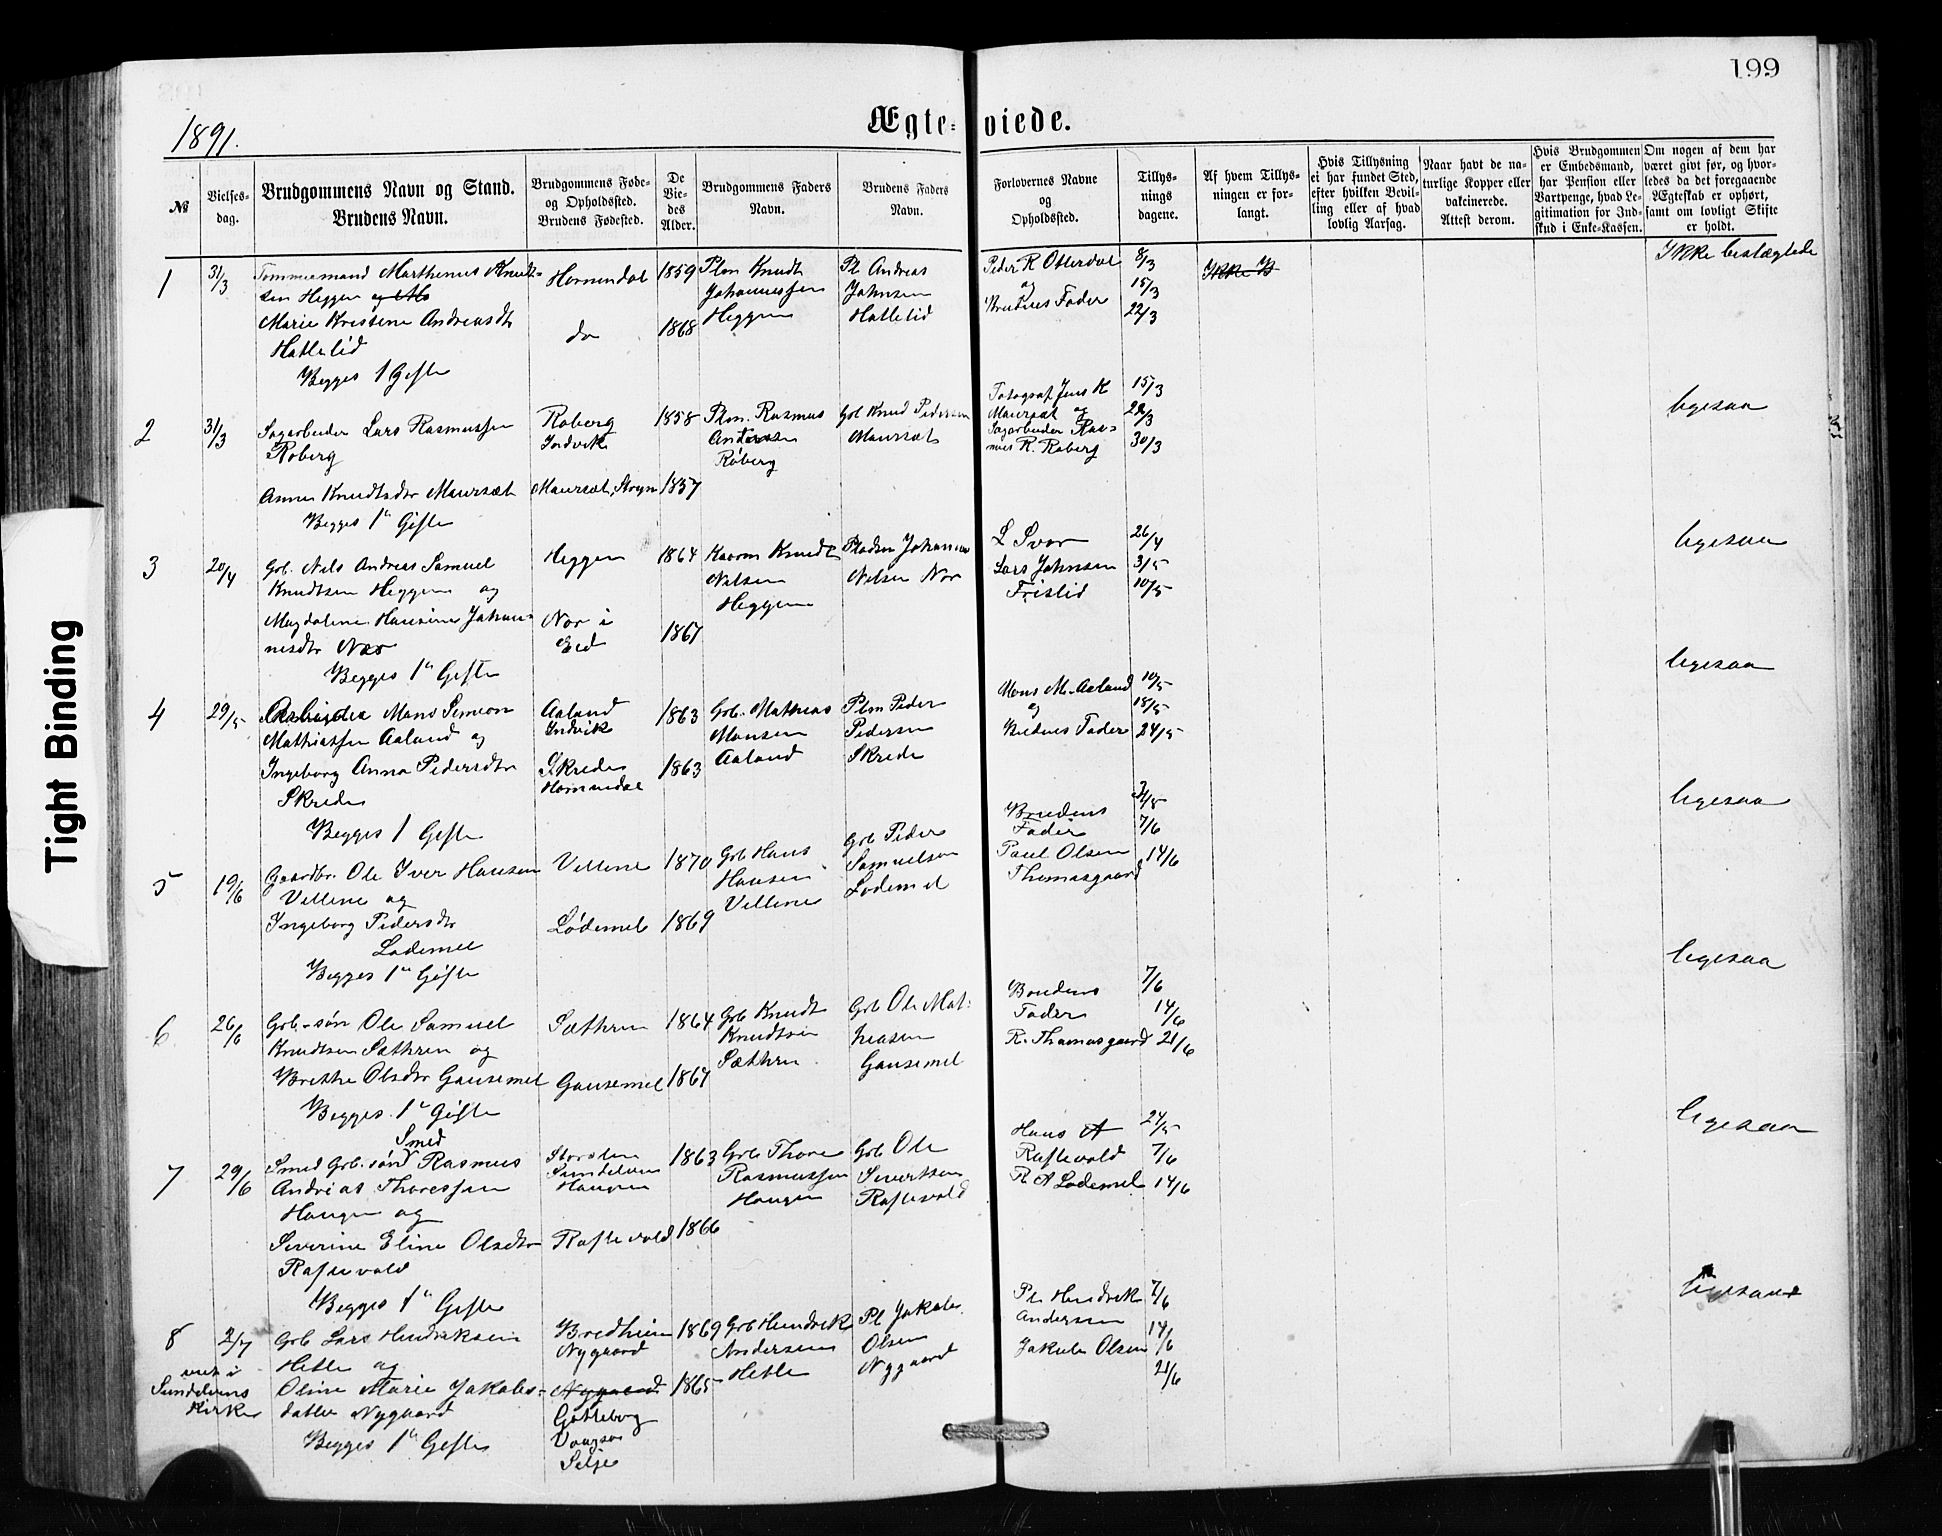 199
1891.
Ægte- viede.
№
Vielses-
dag.
Brudgommens Navn og Stand.
Brudens Navn.
Brudgommens Føde-
og Opholdssted.
Brudens Fødested.
De
Vie-
des
Alder.
Brudgommens Faders
Navn.
Brudens Faders
Navn.
Forlovernes Navne
og
Opholdssted.
Tillys-
nings
dagene.
Af hvem Tillys-
ningen er for-
langt.
Hvis Tillysning
ei har fundet Sted,
efter hvilken Bevil-
ling eller af hvad
lovlig Aarsag.
Naar havt de na-
turlige Kopper eller
vakcinerede.
Attest derom.
Hvis Brudgommen
er Embedsmand,
har Pension eller
Vartpenge, hvad Le-
gitimation for Ind-
skud i Enke-Kassen.
Om nogen af dem har
været givt før, og hvor-
ledes da det foregaaende
Ægteskab er ophørt,
samt om lovligt Skifte
er holdt.
1
31/3
Tømmermand Marthenus Knudt-
sen Heggen og
Marie Kristine Andreasdt
Hatlelid
Begges 1 Gifte
Hornindal
do
1859
1868
Plm Knudt
Johannessen
Heggen
Pl Andreas
Johnsen
Hatlelid
Peder R Otterdal
og
Brudens Fader
8/3
15/3
22/3
Ikke B
Ikke beslægtede
2
31/3
Sagarbeider Lars Rasmussen
Roberg
Anne Knudtsdtr Maursæt
Begges 1ste Gifte
Roberg
Indvik
Maursæt, Stryn
1858
1857
Plm. Rasmus
Andersen
Røberg
Grb Knud Pedersen
Maursæt
Fotograf Jens K
Maursæt og
Sagarbeider Ras-
mus R. Roberg
15/3
22/3
30/3
ligesaa
3
20/4
Grb. Nils Andreas Samuel
Knudtsen Heggen og
Magdalene Hansine Johan-
nesdtr Nor
Begges 1ste Gifte
Heggen
Nor i
Eid
1864
1867
Knudt
Nilsen
Heggen
Johannes
Nilsen Nor
L Svor
Lars Johnsen
Frislid
26/4
3/5
10/5
ligesaa
4
29/5
Mons Simeon
Mathiassen Aaland og
Ingeborg Anna Pedersdtr
Skrede
Begges 1 Gifte
Aaland
Indvik
Skrede
Hornindal
1863
1863
Grb. Mathias
Monsen
Aaland
Plm Peder
Pedersen
Skrede
Mons M. Aaland
og
Brudens Fader
10/5
18/5
24/5
ligesaa
5
19/6
Gaardbr. Ole Iver Hansen
Vellene og
Ingeborg Pedersdtr
Lødemel
Begges 1ste Gifte
Vellene
Lødemel
1870
1869
Grb Hans
Hansen
Vellene
Grb Peder
Samuelsen
Lødemel
Brudens
Fader
Paul Olsen
Thomasgaard
31/5
7/6
14/6
ligesaa
6
26/6
Grb.-søn Ole Samuel
Knudtsen Sæthren og
Brithe Olsdtr Gausemel
Begges 1ste Gifte
Sæthren
Gausemel
1864
1867
Grb Knudt
Knudtsen
Sæthren
Grb Ole Mat-
hiasen
Gausemel
Brudens
Fader
R. Thomasgaard
7/6
14/6
21/6
ligesaa
7
29/6
Smed
Smed Grb.søn Rasmus
Andreas Thoressen
Haugen og
Severine Eline Olsdtr
Raftevold
Begges 1ste Gifte
Sundelven
Haugen
Raftevold
1863
1866
Grb Thore
Rasmussen
Haugen
Grb Ole
Sivertsen
Raftevold
Hans A
Raftevold
R A Lødemel
24/5
7/6
14/6
ligesaa
8
2/7
viet i
Sundelvens
Kirke
Grb Lars Hendriksen
Hetle og
Oline Marie Jakobs-
datter Nygaard
Begges 1ste Gifte
Bredheim
Nygaard
Nygaard
Gotteborg
Vaagsø
Selje
1869
1865
Grb Hendrik
Andersen
Hetle
Pl Jakob
Olsen
Nygaard
Pl Hendrik
Andersen
Jakob Olsen
7/6
14/6
21/6
ligesaa
Tight Binding